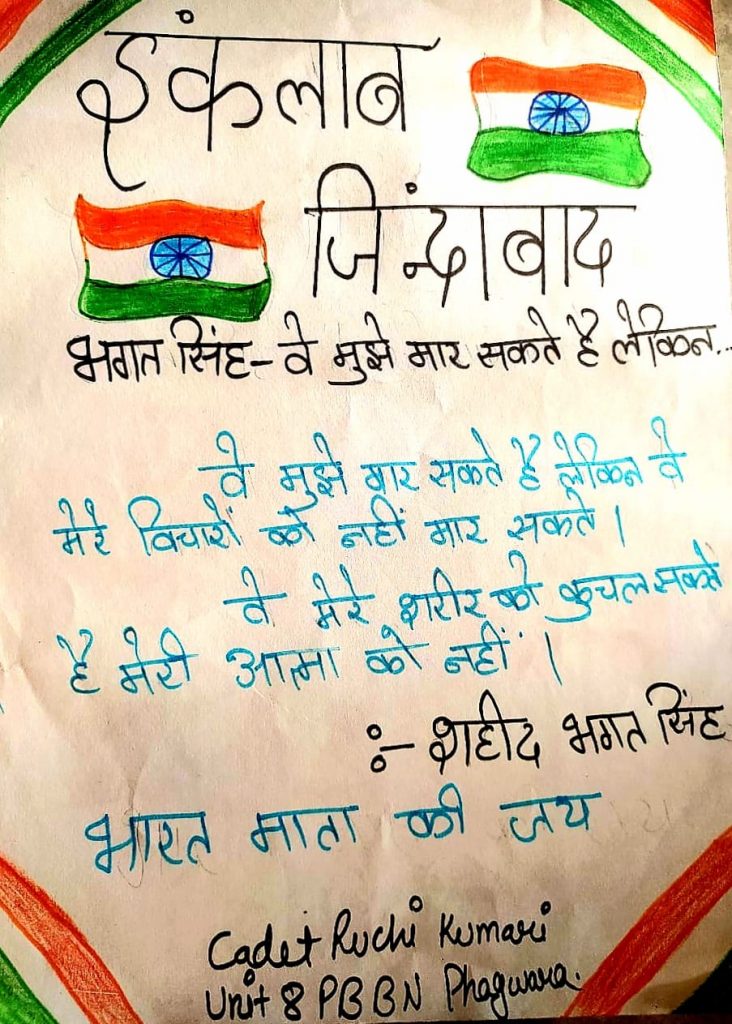 इंकलाब
जिंन्दाबाद
भगत सिंह - वे मुझे मार सकते है लेकिन...
वे मुझे मार सकते है लेकिन वे
मेरे विचारों को नहीं मार सकते।
वे मेरे शरीर को कुचल सकते
है मेरी आत्मा को नहीं।
:- शहीद भगत सिंह
भारत माता की जय
Cadet Ruchi Kumari
Unit 8 PB BN Phagwara.